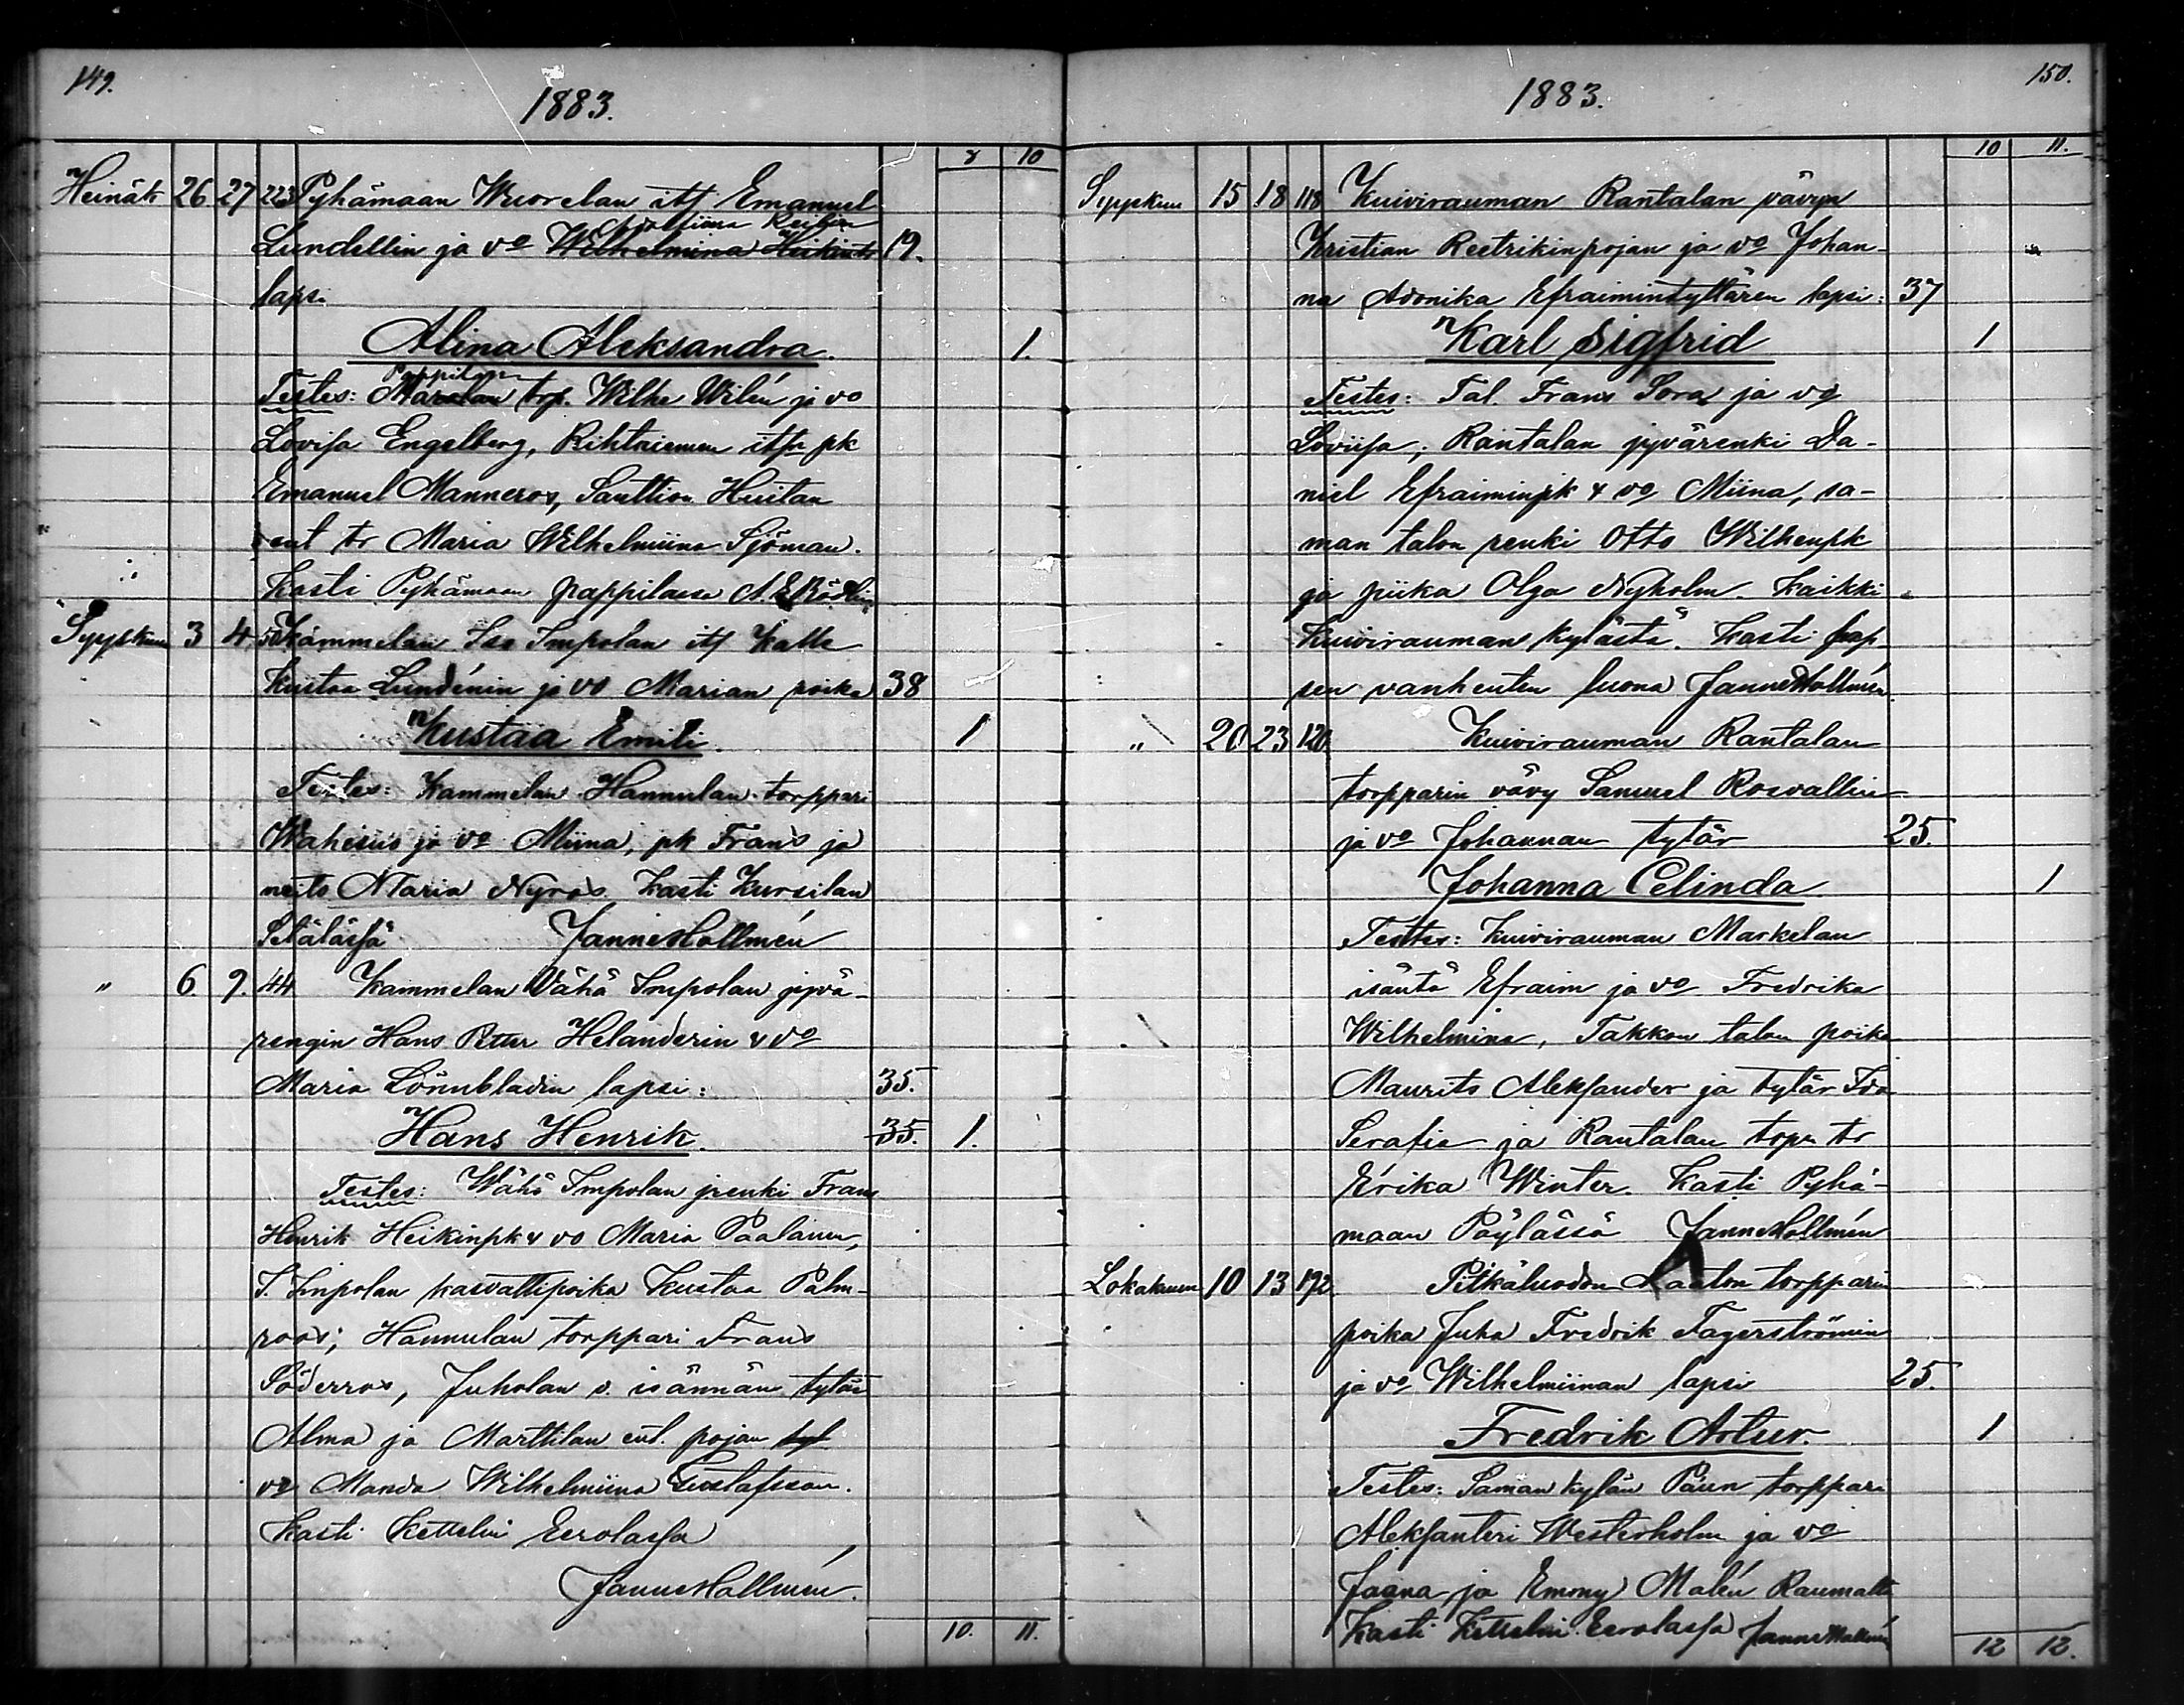 149.
1883.
8 10
Heinäk 26 27 223 Pyhämaan Wuorelan itf Emanuel
Lundellin ja vo Wilhelmina Heikint 19.
lapsi
Alina Aleksandra. 1.
Pappilan
Testes: torp. Wilhe Wilén ja vo
Lovisa Engelberg, Rihtniemen pk
Emanuel Manneros, Santtion Huitan
ent tr Maria Wilhelmiina Sjöman.
Kasti Pyhämaan pappilassa
Syyskuu 3 4 50 Kammelan Iso Impolan itf Kalle
Kustaa Lundénin ja vo Marian poika 38
Kustaa Emili. 1
Testes: Kammelan Hannulan torppari
Wahesius ja vo Miina, pk Frans ja
neito Maria Nyros Kasti Kursilan
Setälässä Janne Hollmén
" 6. 9. 44 Kammelan Vähä Impolan jyvä-
rengin Hans Petter Helanderin & vo
Maria Lönnbladin lapsi: 35.
Hans Henrik. 35. 1.
Testes: Wähä Impolan renki Frans
Henrik Heikinpk & vo Maria Paalanen,
I. Impolan kasvattipoika Kustaa Palm-
roos; Hannulan torppari Frans
Söderros, Juholan v. isännän tytär
Alma ja Marttilan ent. pojan tyt
vo Manda Wilhelmiina Gustafsson.
Kasti Kettelin Eerolassa
Janne Hollmén.
10. 11.
150.
1883.
10 11.
Syyskuu 15 18 118 Kuivirauman Rantalan vävyn
Kristian Reetrikinpojan ja vo Johan-
na Adonika Efraimintyttären lapsi: 37
Karl Sigfrid 1
Testes: Tal. Frans Sora ja vo
Loviisa; Rantalan jyvärenki Da-
niel Efraiminpk & vo Miina, sa-
man talon renki Otto Wilhenpk
ja piika Olga Nyholm. Kaikki
Kuivirauman kylästä. Kasti lap-
sen vanhenten luona Janne Hollmén
" 20 23 120 Kuivirauman Rantalan
torpparin vävy Samuel Rosvallin
ja vo Johannan tytär 25.
Johanna Celinda 1
Testes: Kuivirauman Markelan
isäntä Efraim ja vo Fredrika
Wilhelmina, Takkon talon poika
Maurits Aleksander ja tytär Ida
Serafia ja Rantalan torp. tr
Erika Winter. Kasti Pyhä-
maan Pöylässä Janne Hollmén
Lokakuun 10 13 192 Pitkäluodon torpparin
poika Juha Fredrik Fagerströmin
ja vo Wilhelmiinan lapsi 25.
Fredrik Artur. 1
Testes: Saman kylän torppari
Aleksanteri Westerholm ja vo
Jaana ja Emmy Malén Raumalta
Kasti Kettelin Eerolassa Janne Hollmén
12 12.